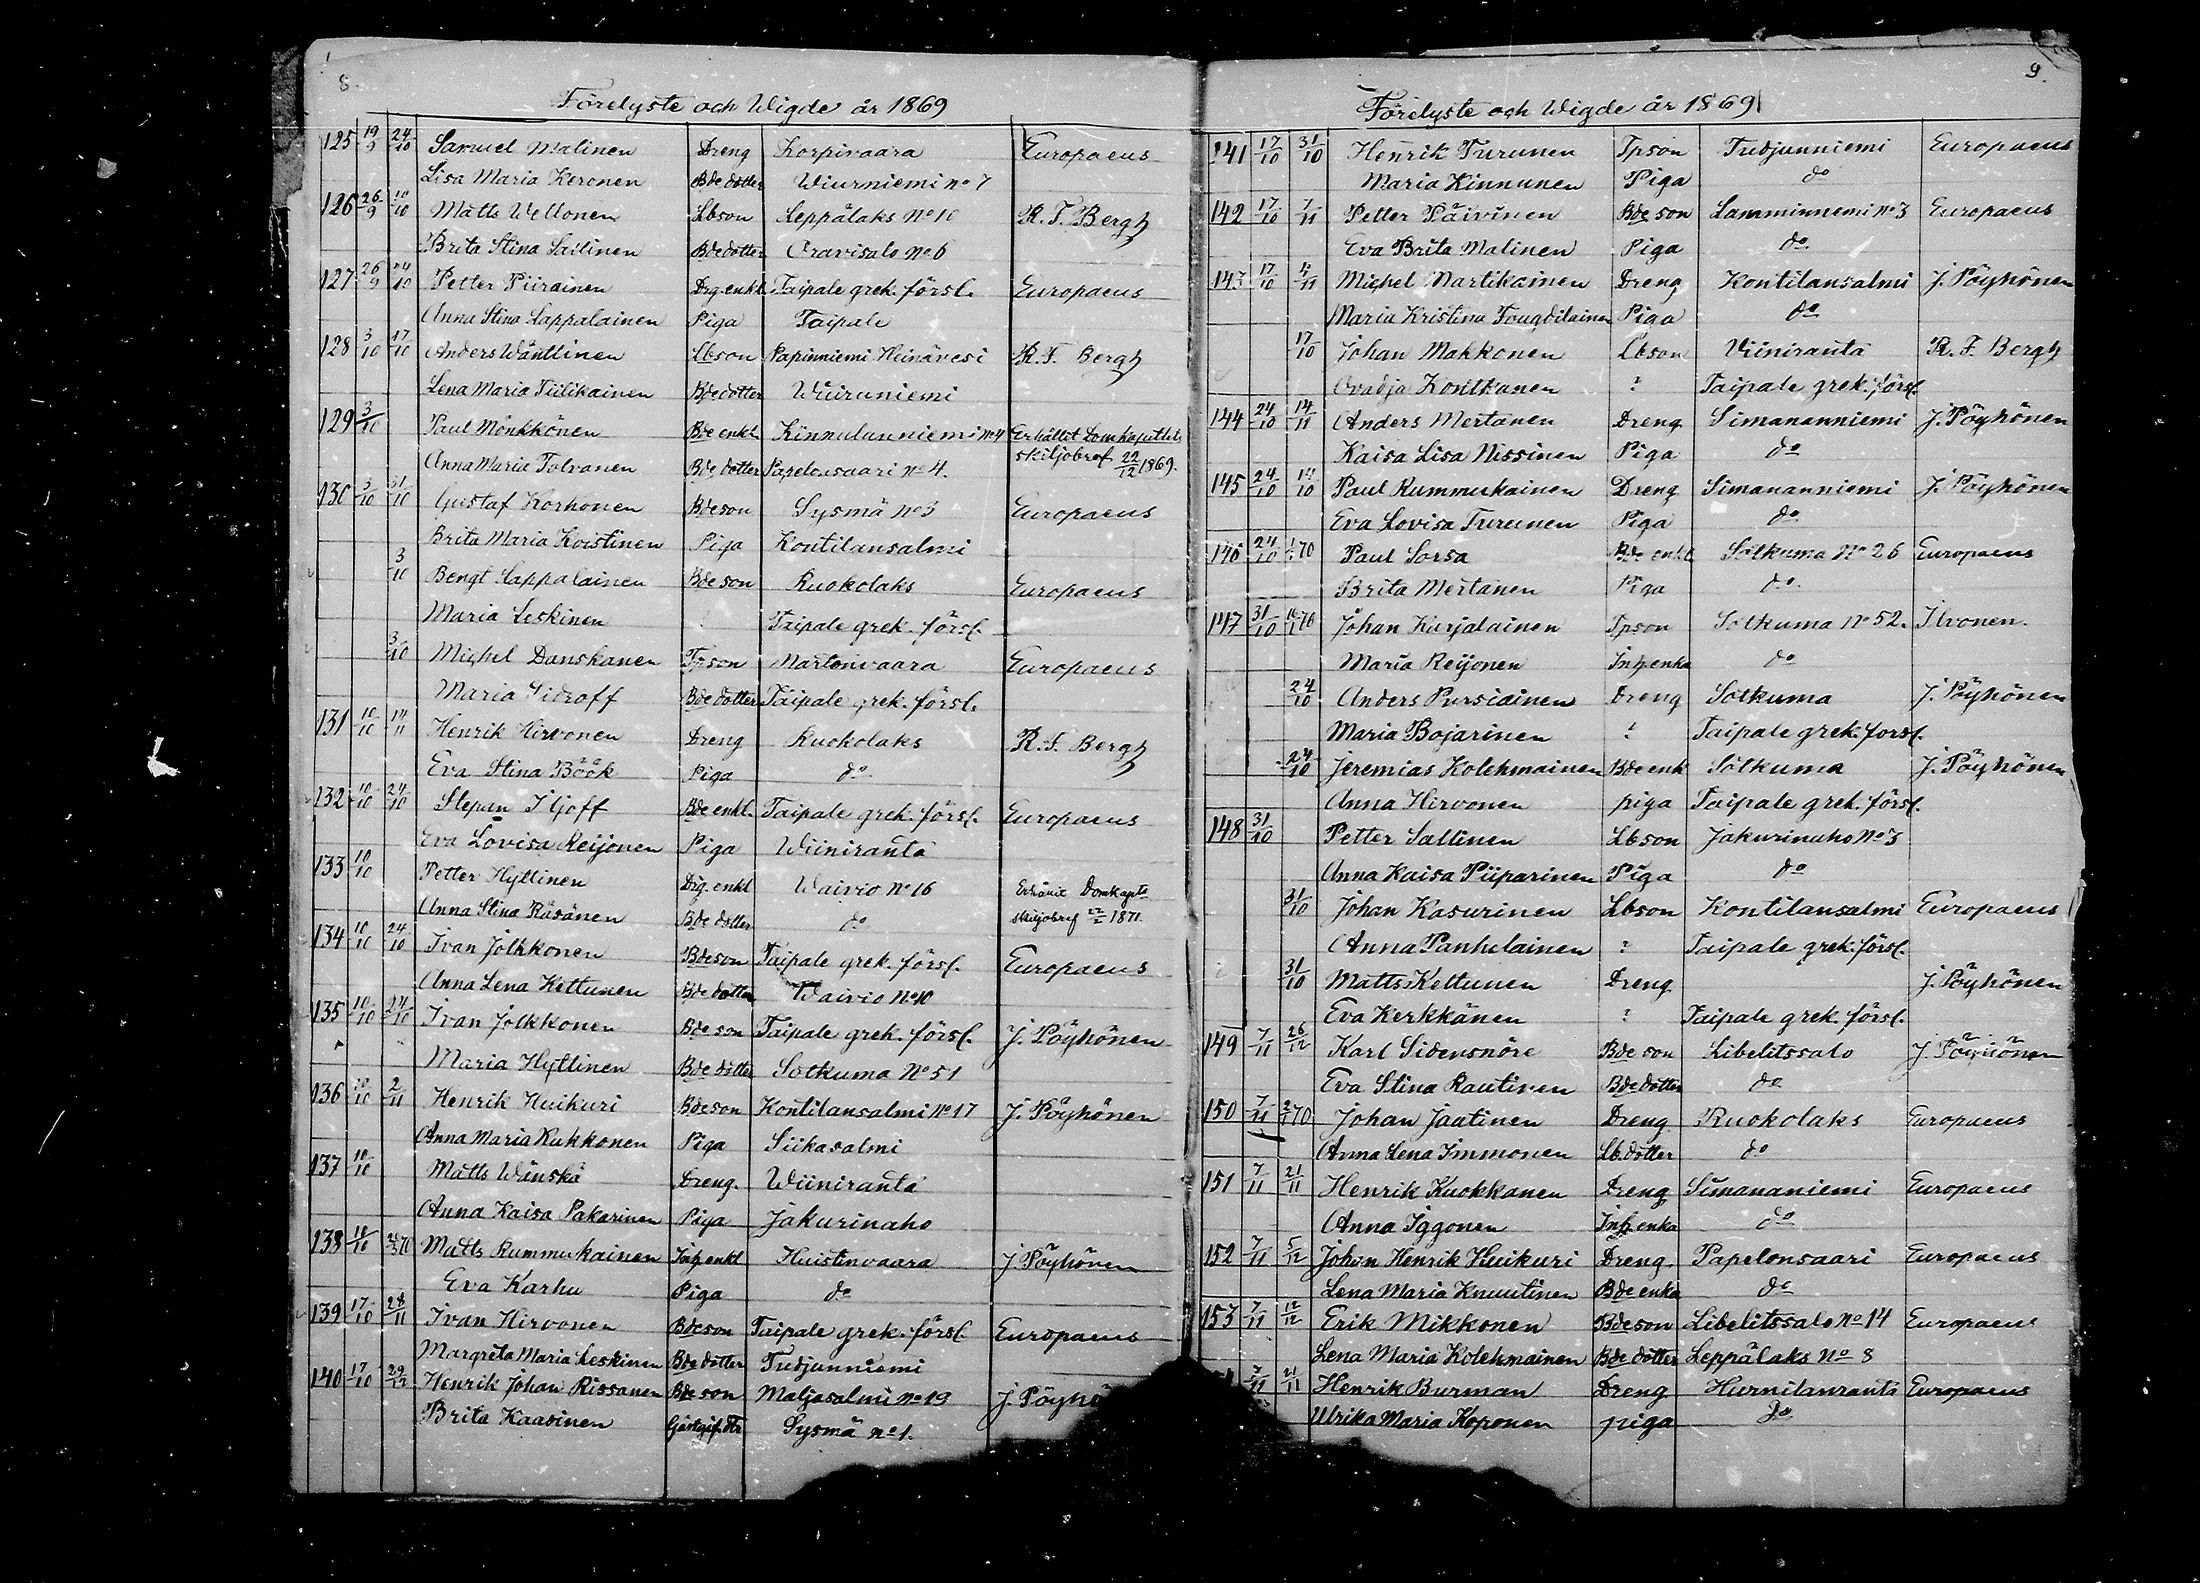 8.
Förelyste och Wigde år 1869
125 19/9 24/10 Samuel Malinen Dreng Korpivaara Europaeus
Lisa Maria Keronen Bde dotter Wiurniemi no 7
126 26/9 10/10 Matts Weltonen Lbson Leppälaks No 10 R. F. Bergh
Brita Stina Sailinen Bde dotter Oravisalo No 6
127 26/9 24/10 Petter Piirainen Drg. enkl. Taipale grek. försl. Europaeus
Anna Stina Lappalainen Piga Taipale
128 3/10 17/10 Anders Wänttinen Lbson Papinniemi Heinävesi R. F. Bergh
Lena Maria Tiilikainen Bde dotter Wiuruniemi
129 3/10 Paul Mönkkönen Bde enkl. Kinnulanniemi No 4 Erhållet Domkapitlets
Anna Maria Tolvanen Bde dotter Papelonsaari No 4. skiljobref 22/12 1869.
130 3/10 31/10 Gustaf Korhonen Bdeson Sysmä no 3 Europaeus
Brita Maria Koistinen Piga Kontilansalmi
3/10 Bengt Lappalainen Bde son Ruokolaks Europaeus
Maria Leskinen Taipale grek. försl.
3/10 Michel Danskanen Tpson Martonvaara Europaeus
Maria Sidroff Bde dotter Taipale grek. försl.
131 10/10 14/11 Henrik Hirvonen Dreng Ruokolaks R. F. Bergh
Eva Stina Böök Piga do
132 10/10 24/10 Stepan Iljoff Bde enkl. Taipale grek. försl. Europaeus
Eva Lovisa Reijonen Piga Wiiniranta
133 10/10 Petter Hyttinen Drg. enkl Waivio No 16 Domkapits
Anna Stina Räsänen Bde dotter do skiljobref 1871.
134 10/10 24/10 Ivan Jolkkonen Bdeson Taipale grek. försl. Europaeus
Anna Lena Kettunen Bde dotter Waivio No 10
135 10/10 24/10 Ivan Jolkkonen Bde son Taipale grek. försl. J. Pöyhönen
Maria Hyttinen Bde dotter Sotkuma No 51
136 10/10 2/11 Henrik Huikuri Bdeson Kontilansalmi No 17 J. Pöyhönen
Anna Maria Kukkonen Piga Siikasalmi
137 10/10 Matts Wänskä Dreng. Wiiniranta
Anna Kaisa Pakarinen Piga Jakurinaho
138 10/10 Matts Rummukainen Inh. enkl Huistinvaara J. Pöyhönen
Eva Karhu Piga do
139 17/10 28/11 Ivan Hirvonen Bdeson Taipale grek. försl. Europaeus
Margreta Maria Leskinen Bde dotter Tudjunniemi
140 17/10 29/12 Henrik Johan Rissanen Bde son Maljasalmi No 19 J. Pöyhö
Brita Kaasinen Gästgif. dtr Sysmä no 1.
9.
Förelyste och Wigde år 1869
141 17/10 31/10 Henrik Turunen Tpson Tudjunniemi Europaeus
Maria Kinnunen Piga do
142 17/10 7/11 Petter Päivinen Bde son Lamminniemi No 3 Europaeus
Eva Brita Malinen Piga do
143 17/10 Michel Martikainen Dreng Kontilansalmi J. Pöyhönen
Maria Kristina Fougdilainen Piga do
17/10 Johan Makkonen Lbson Viiniranta R. F. Bergh
Ovadja Kontkanen ? Taipale grek. försl.
144 24/10 14/11 Anders Mertanen Dreng Simananniemi J. Pöyhönen
Kaisa Lisa Nissinen Piga do
145 24/10 14/10 Paul Rummukainen Dreng Simananniemi J. Pöyhönen
Eva Lovisa Turunen Piga do
146 24/10 70 Paul Sorsa Bde enkl Sotkuma No 26 Europaeus
Brita Mertanen Piga do.
147 31/10 16/1 70 Johan Karjalainen Tpson Sotkuma No 52. Ilvonen.
Maria Reijonen Inh. enka do
24/10 Anders Pursiainen Dreng Sotkuma J. Pöyhönen
Maria Bojarinen ? Taipale grek. försl.
24/10 Jeremias Kolehmainen Bde enk Sotkuma J. Pöyhönen
Anna Hirvonen piga Taipale grek. försl.
148 31/10 Petter Saltinen Lbson Jakurinaho No 3
Anna Kaisa Piiparinen Piga do
31/10 Johan Kasurinen Lbson Kontilansalmi Europaeus
Anna Panhelainen ? Taipale grek. försl.
31/10 Matts Kettunen Dreng J. Pöyhönen
Eva Kerkkänen ? Taipale grek. försl.
149 7/11 26/12 Karl Sidensnöre Bde son Libelitssalo J. Pöyhönen
Eva Stina Rautinen Bde dotter do
150 7/11 70 Johan Jaatinen Dreng Ruokolaks Europaeus
Anna Lena Immonen Lb. dotter do
151 7/11 21/11 Henrik Kuokkanen Dreng Simananiemi Europaeus
Anna Iggonen Inh. enka do
152 7/11 5/12 Johan Henrik Huikuri Dreng Papelonsaari Europaeus
Lena Maria Knuutinen Bde enka do
153 7/11 12/12 Erik Mikkonen Bdeson Libelitssalo No 14 Europaeus
Lena Maria Kolehmainen Bde dotter Leppälaks No 8
7/11 21/11 Henrik Burman Dreng Hurnilanranta Europaeus
Ulrika Maria Koponen piga do